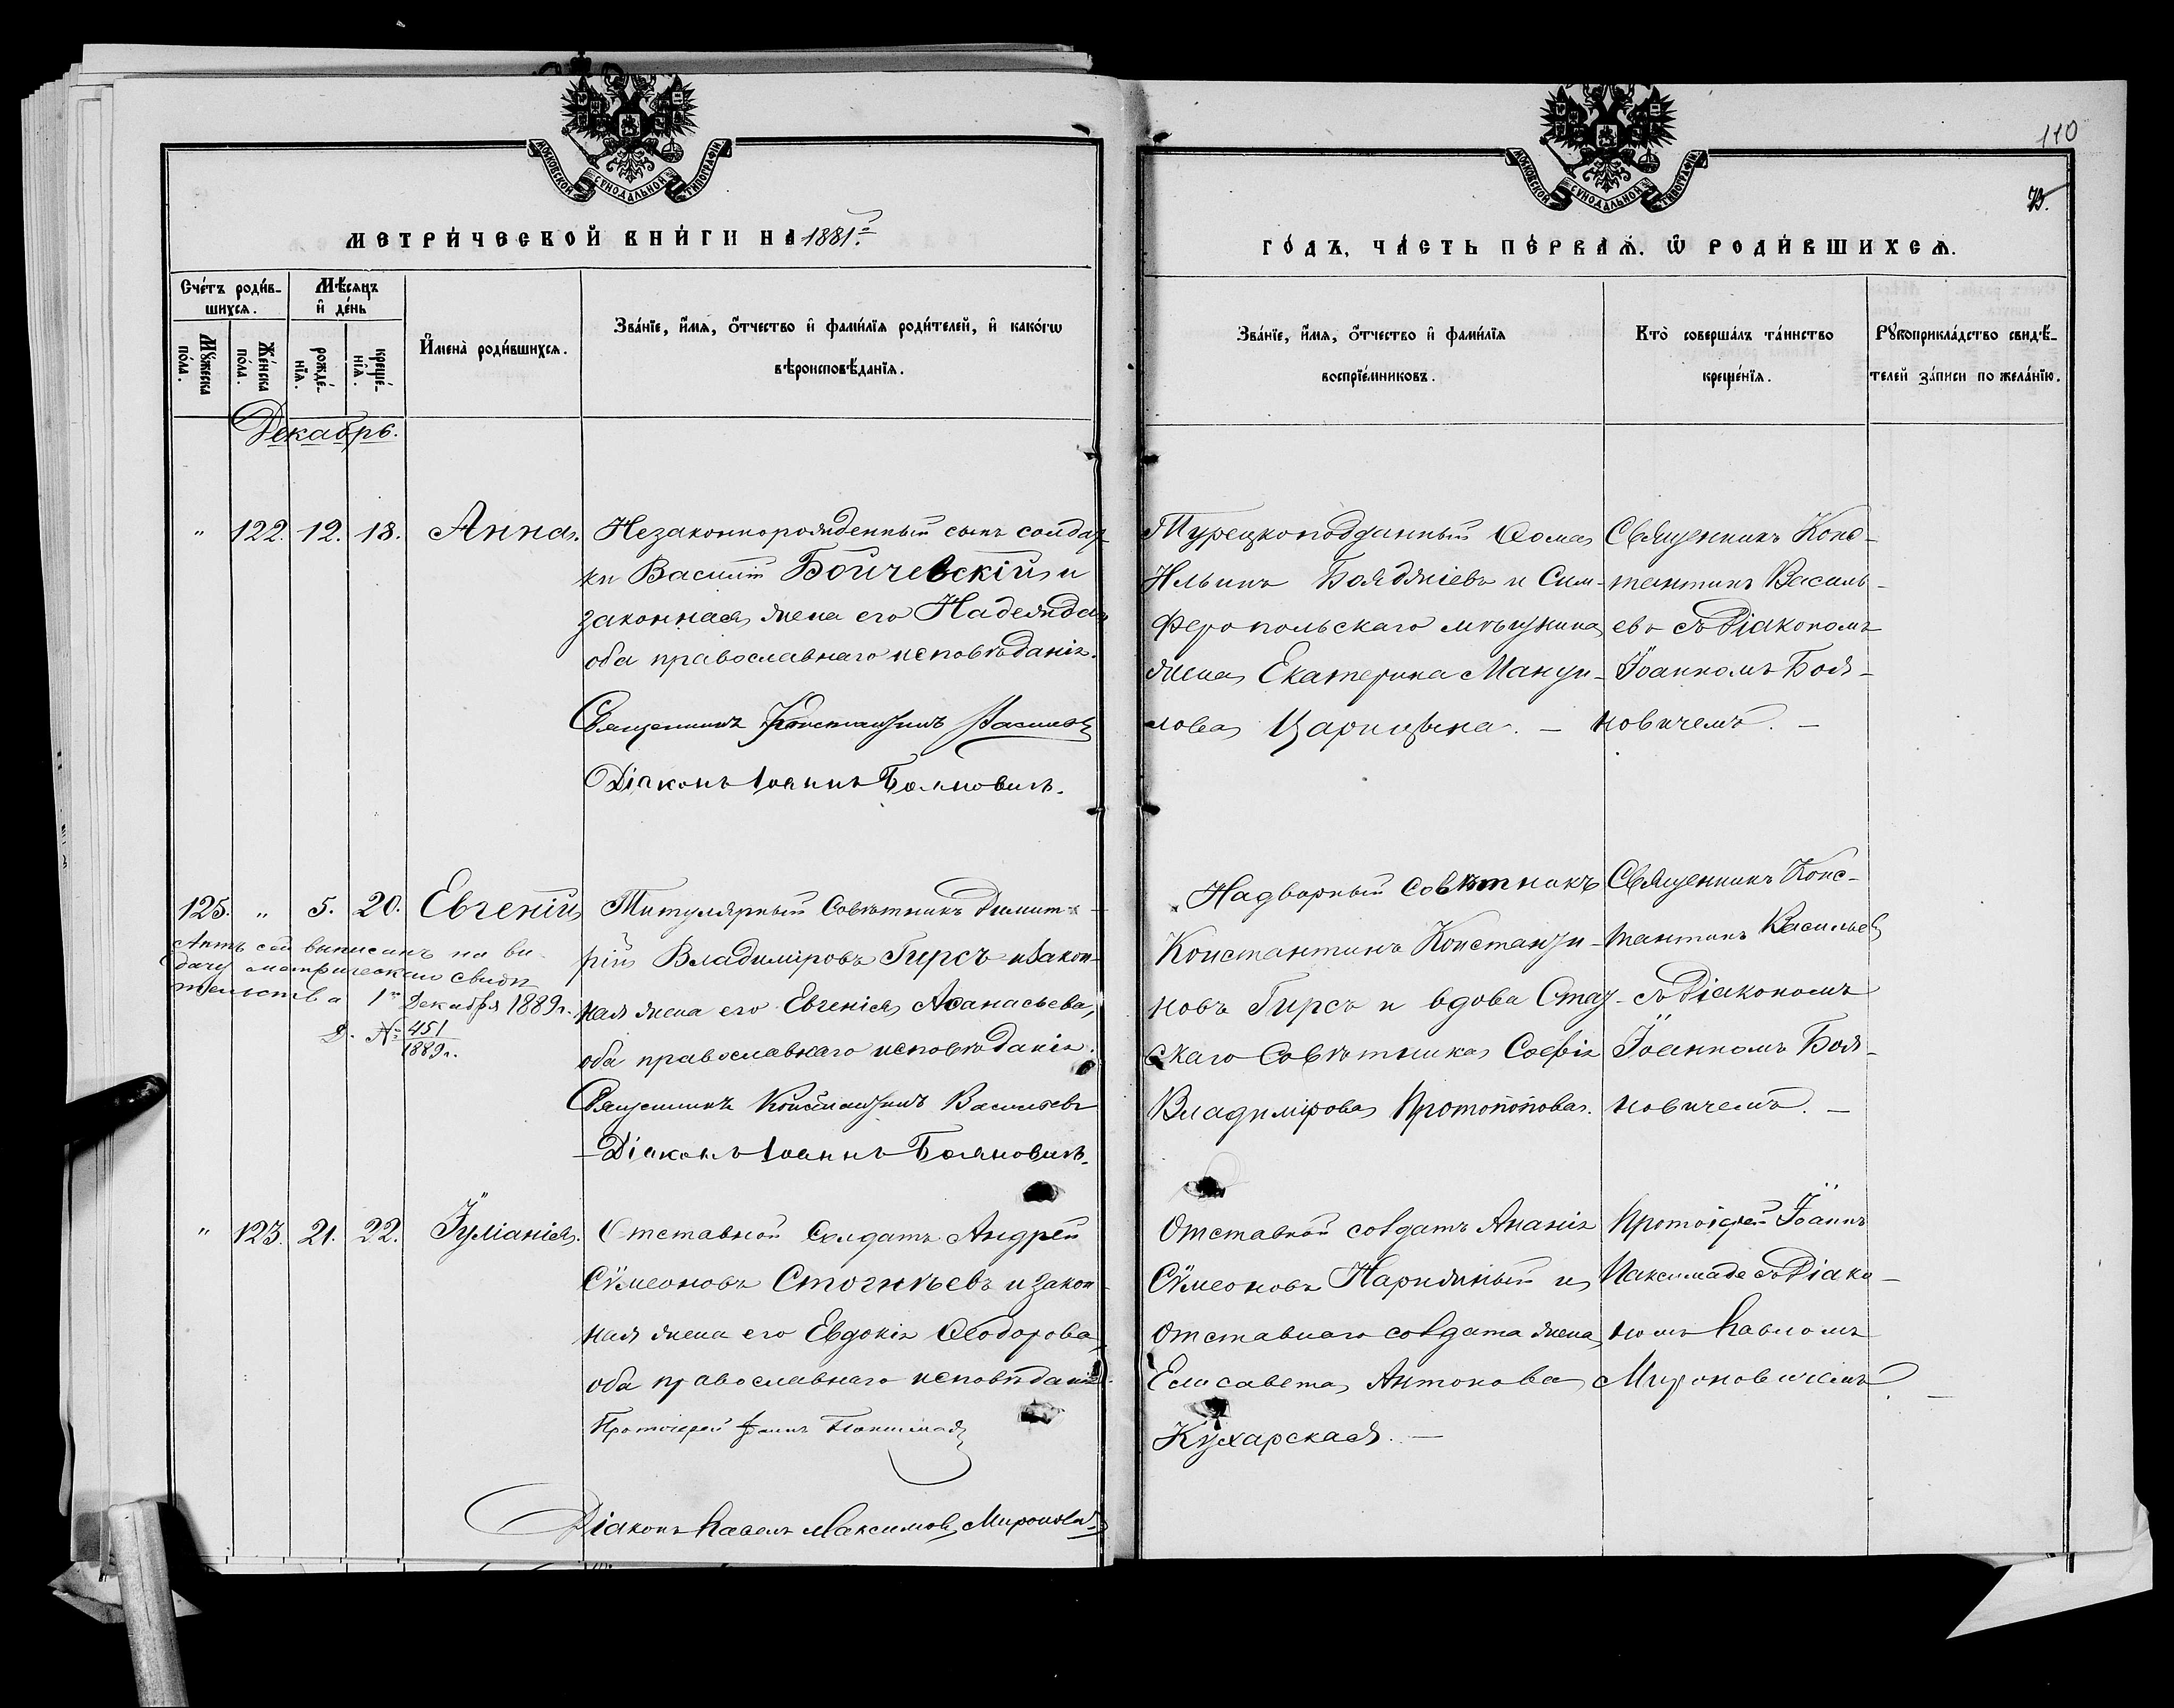 110
73.
МОСКОВСКОЙ СУНОДАЛЬНОЙ ТИПОГРАФІИ
МОСКОВСКОЙ СУНОДАЛЬНОЙ ТИПОГРАФІИ
МЕТРИ́ЧЕСКОЙ КНИ́ГИ НА 1881й
ГО́ДЪ, ЧА́СТЬ ПЕ́РВАѦ, Ѡ РОДИ́ВШИХСѦ.
Сче́тъ роди́в-
шихсѧ.
Мꙋ́жеска по́ла.
Же́нска по́ла.
Мѣ́сѧцъ
и҆ де́нь
рожде́-
нїѧ.
креще́-
нїѧ.
И҆мена̀ роди́вшихсѧ.
Зва́нїе, и҆́мѧ, ѻ҆́тчество и҆ фами́лїѧ роди́телей, и҆ како́гѡ
вѣроисповѣ́данїѧ.
Зва́нїе, и҆́мѧ, ѻ҆́тчество и҆ фами́лїѧ
воспрїе́мниковъ.
Кто̀ соверша́лъ та́инство
креще́нїѧ.
Рꙋкоприкла́дство свидѣ́-
телей за́писи по жела́нїю.
Декабрь.
" 122. 12. 18. Анна.
Незаконнорожденный сынъ солдат-
ки Василій Бойчевскій и
законная жена его Надежда
оба православнаго исповѣданія.
Священникъ Константинъ Васильевъ
Діаконъ Іоаннъ Бояновичъ.
Турецкоподданный Ѳома
Ильинъ Бояджіевъ и Сим-
феропольскаго мѣщанина
жена Екатерина Мануи-
лова Царицына. —
Священникъ Конс-
тантинъ Василь-
евъ съ Діакономъ
Іоанномъ Боя-
новичемъ. —
125. " 5. 20. Евгеній
Актъ сей выписанъ на вы-
дачу метрическаго свидѣ
тельства 1го Декабря 1889г.
Д. № 451
1889г.
Титулярный Совѣтникъ Димит-
рій Владиміровъ Гирсъ и закон-
ная жена его Евгенія Аѳанасьева,
оба православнаго исповѣданія.
Священникъ Константинъ Васильевъ
Діаконъ Іоаннъ Бояновичъ.
Надворный Совѣтникъ
Константинъ Константи-
новъ Гирсъ и вдова Стат-
скаго Совѣтника Софія
Владимірова Протопопова.
Священникъ Конс-
тантинъ Васильевъ
съ Діакономъ
Іоанномъ Боя-
новичемъ. —
" 123. 21. 22. Іуліанія.
Отставной Солдатъ Андрей
Сѵмеоновъ Стогнѣевъ и закон-
ная жена его Евдокія Ѳеодорова
оба православнаго исповѣданія.
Протоіерей Іоаннъ
Діаконъ Павелъ Максимовъ Мироновичъ
Отставной солдатъ Ананія
Сѵмеоновъ Нарижный и
отставнаго солдата жена
Елисавета Антонова
Кухарская. —
Протоіерей Іоаннъ
съ Діако-
номъ Павломъ
Мироновичемъ. —